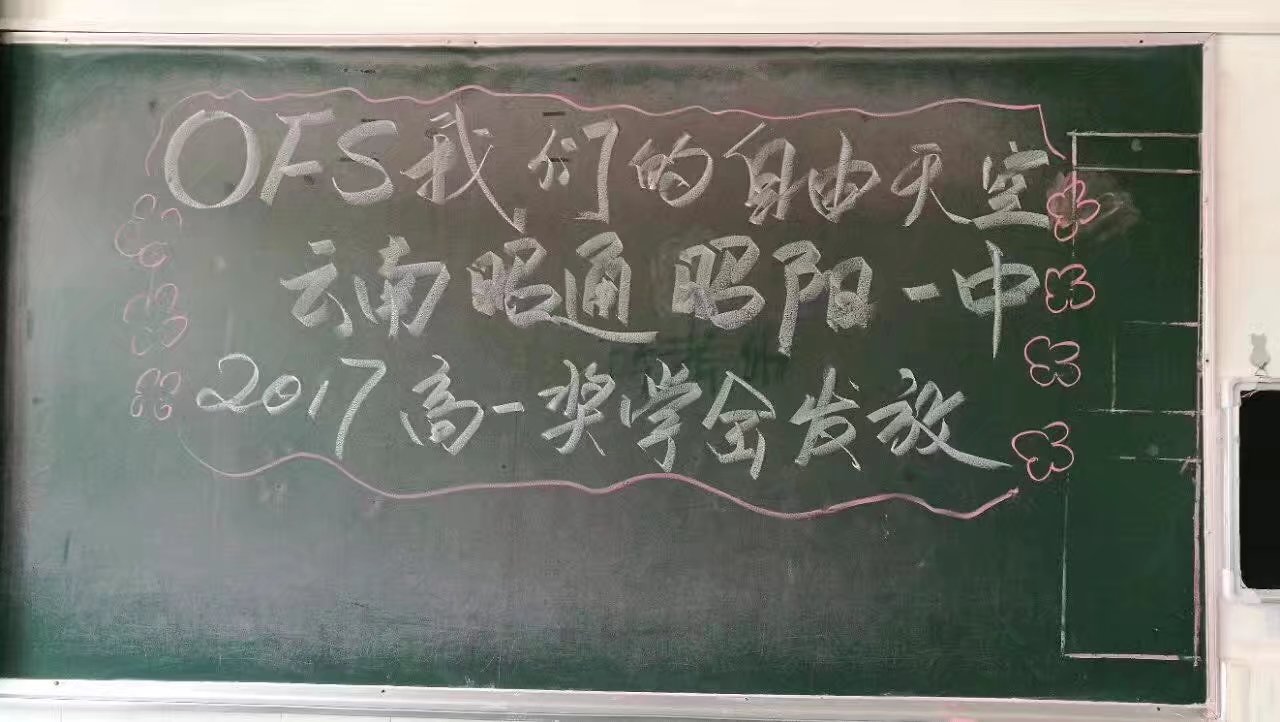 OFS我们的自由天空
云南昭通昭阳一中
2017高一奖学金发放